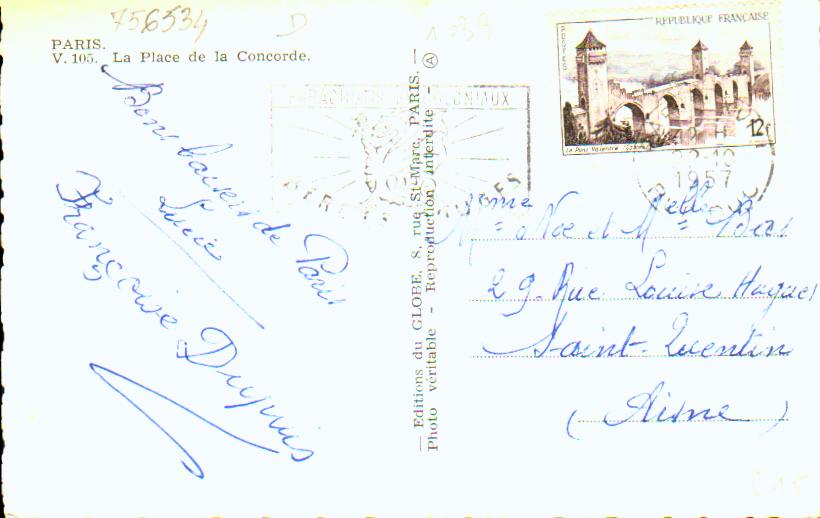 756534
D
1039
PARIS.
V. 105. La Place de la Concorde.
Bons baisers de Paris
Lucie
Françoise Dupuis
— Editions du GLOBE, 8, rue St-Marc, PARIS. —
Photo véritable - Reproduction interdite - A
REPUBLIQUE FRANÇAISE
POSTES
Le Pont Valentré (Cahors)
12F
PARACHUTISTES COLONIAUX
1957
Mme Noe et Melle
29. Rue Louise
Saint-Quentin
(Aisne)